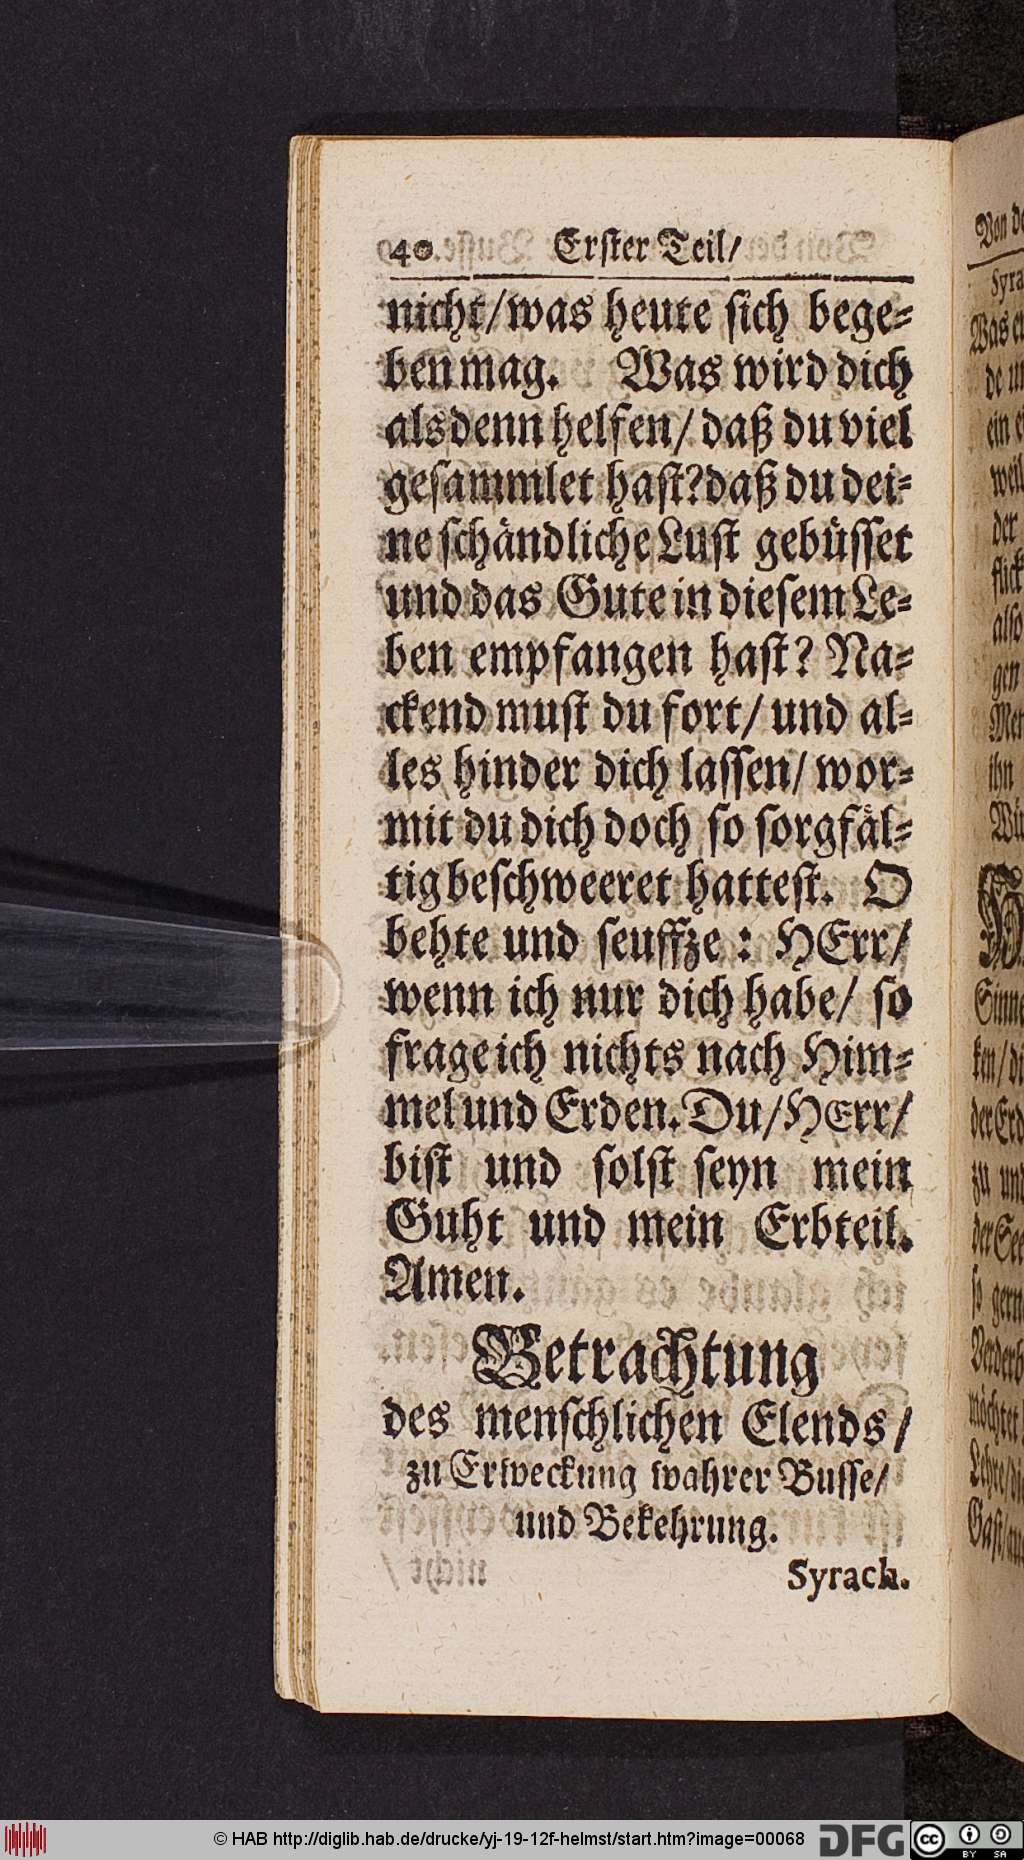 40 Erster Teil/
nicht/was heute sich bege-
ben mag. Was wird dich
alsdenn helfen/ daß du viel
gesammlet hast?daß du dei-
ne schändliche Lust gebüsset
und das Gute in diesem Le-
ben empfangen hast? Na-
ckend must du fort/ und al-
les hinder dich lassen/ wor-
mit du dich doch so sorgfäl-
tig beschweeret hattest. O
behte und seuffze : HErr/
wenn ich nur dich habe/ so
frage ich nichts nach Him-
mel und Erden. Du/HErr/
bist und solst seyn mein
Guht und mein Erbteil.
Amen.
Betrachtung
des menschlichen Elends/
zu Erweckung wahrer Busse/
und Bekehrung.
Syrach.
Von
Was
de
ein
weil
der
also
gen
ihn
Sinne
ken/
zu und
so gern
möchtet
Lehre/
Gast/
© HAB http://diglib.hab.de/drucke/yj-19-12f-helmst/start.htm?image=00068 DFG cc BY SA